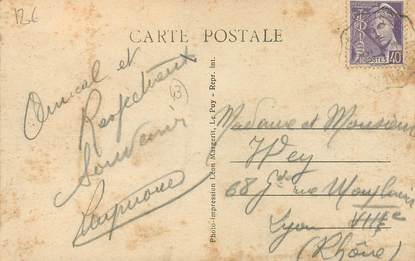 12€
CARTE POSTALE
POSTES 40
Amical et
Respectueux
Souvenir
Raymonde
13
Photo-Impression Léon Margerit, Le Puy - Repr. Int.
Madame et Monsieur
Wey
68 rue
Lyon VIIe
(Rhône)